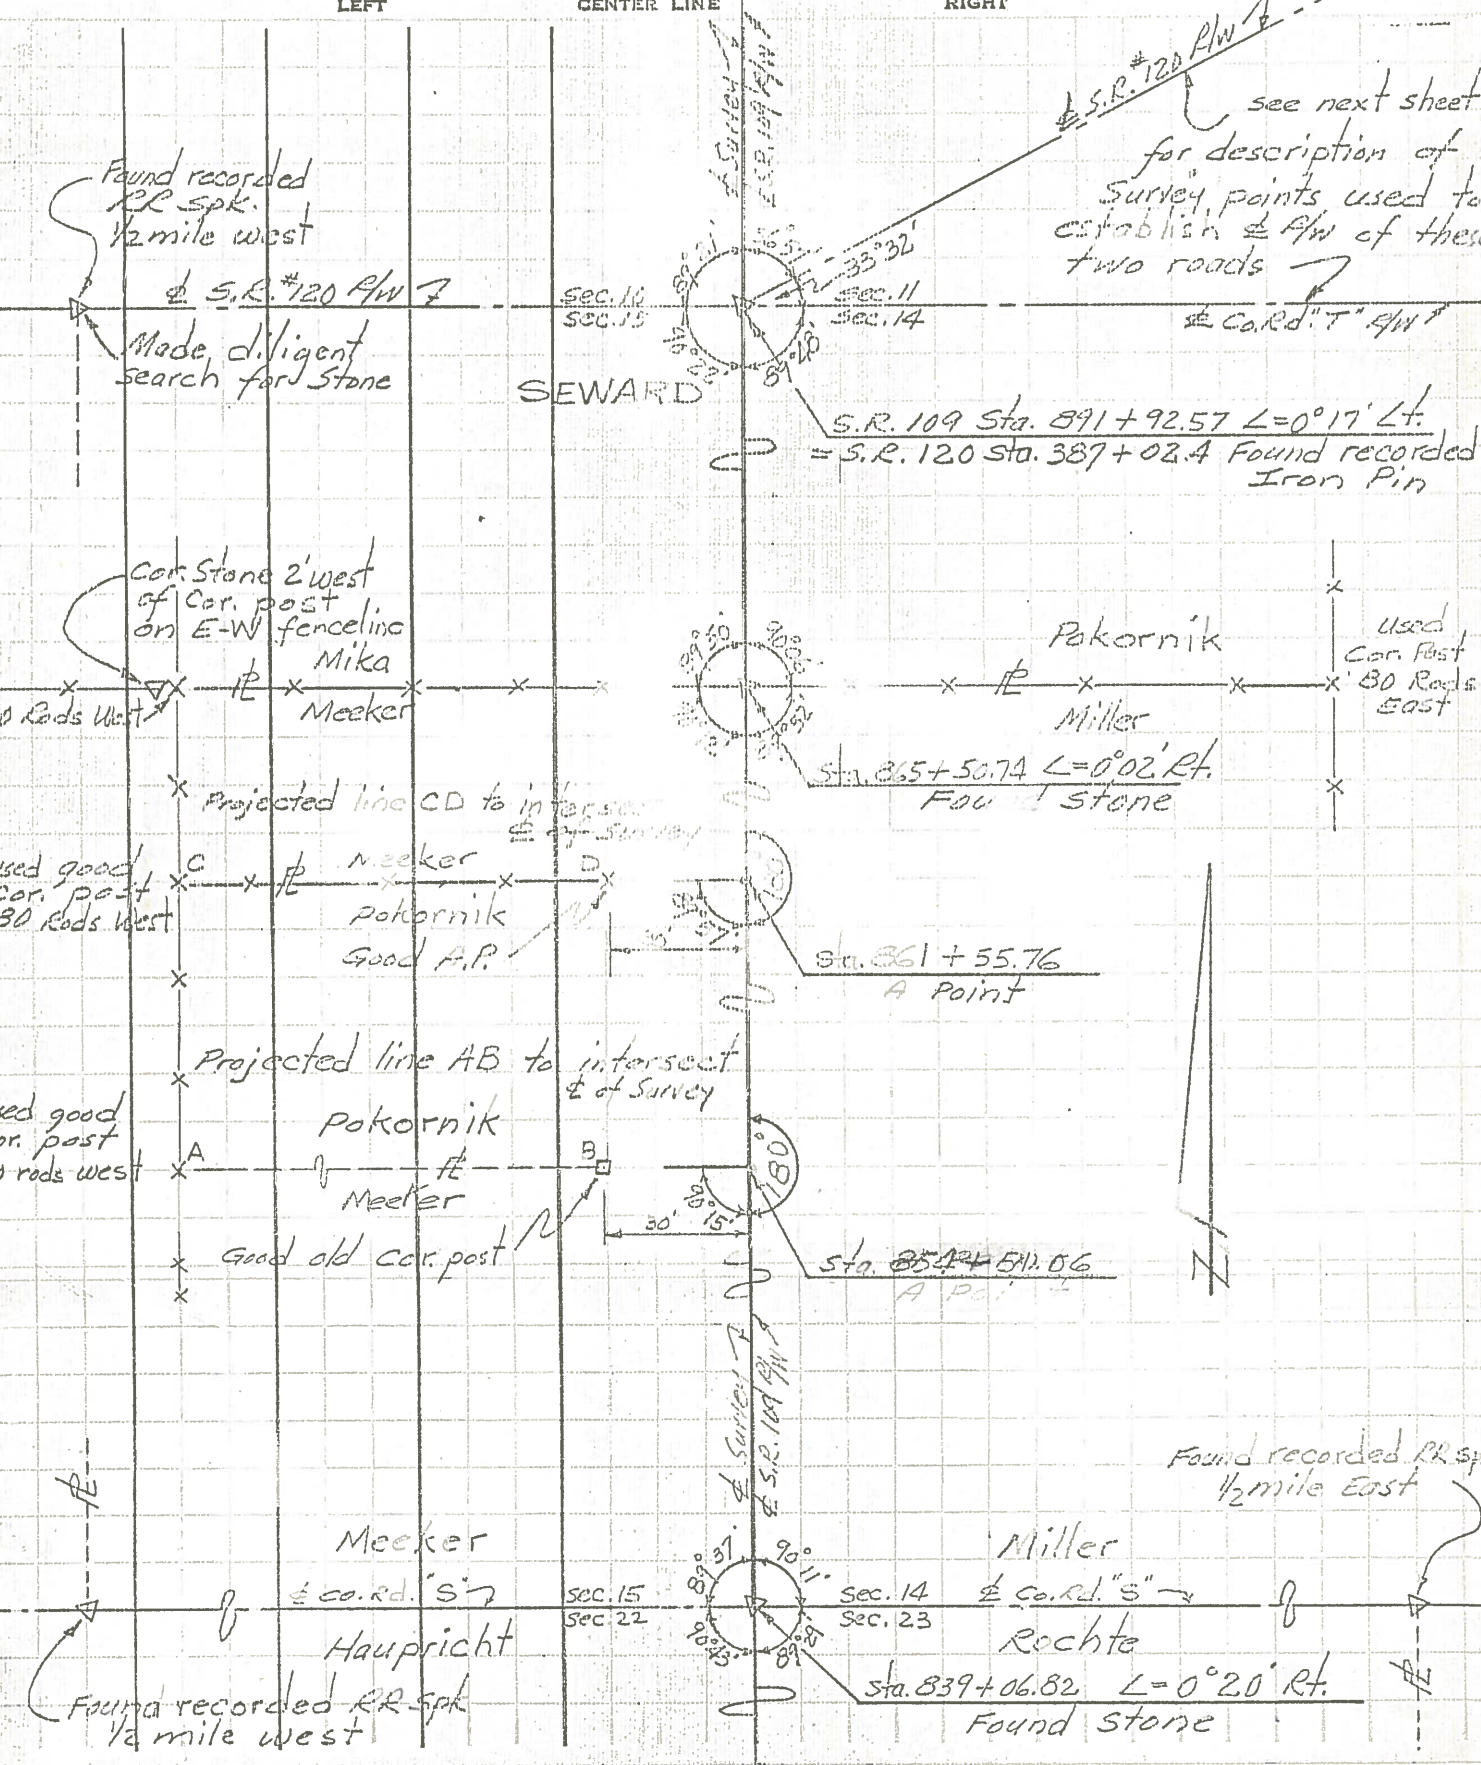 LEFT
CENTER LINE
RIGHT
℄ Survey
℄ S.R. 109 R/W
℄ S.R. #120 R/W
see next sheet
for description of
Survey points used to
establish ℄ R/W of these
two roads
Found recorded
RR spk.
1/2 mile west
℄ S.R. #120 R/W
Sec. 10
Sec. 15
33°32'
Sec. 11
Sec. 14
℄ Co. Rd. "T" R/W
Made diligent
search for Stone
87°28'
SEWARD
S.R. 109 Sta. 891 + 92.57 ∠=0°17' Lt.
= S.R. 120 Sta. 387 + 02.4 Found recorded
Iron Pin
Cor. Stone 2' west
of Cor. post
on E-W fenceline
Mika
Meeker
Rods West
℄
Pokornik
Miller
used
Cor. Post
80 Rods
East
Sta. 865 + 50.74 ∠=0°02' Rt.
Found Stone
Projected line CD to intersect
℄ of Survey
used good
Cor. post
80 Rods West
C
Meeker
D
Pokornik
Good A.P.
180°
Sta. 861 + 55.76
A Point
Projected line AB to intersect
℄ of Survey
good
post
rods west
A
Pokornik
B
Meeker
180°
90°15'
30'
Good old Cor. post
Sta.
A Point
N
℄ Survey
℄ S.R. 109 R/W
Found recorded RR
1/2 mile East
Meeker
89°37'
90°11'
Miller
℄ Co. Rd. "S"
Sec. 15
Sec. 22
Sec. 14
Sec. 23
℄ Co. Rd. "S"
Haupricht
89°29'
Rochte
Sta. 839 + 06.82 ∠=0°20' Rt.
Found Stone
Found recorded RR Spk
1/2 mile west